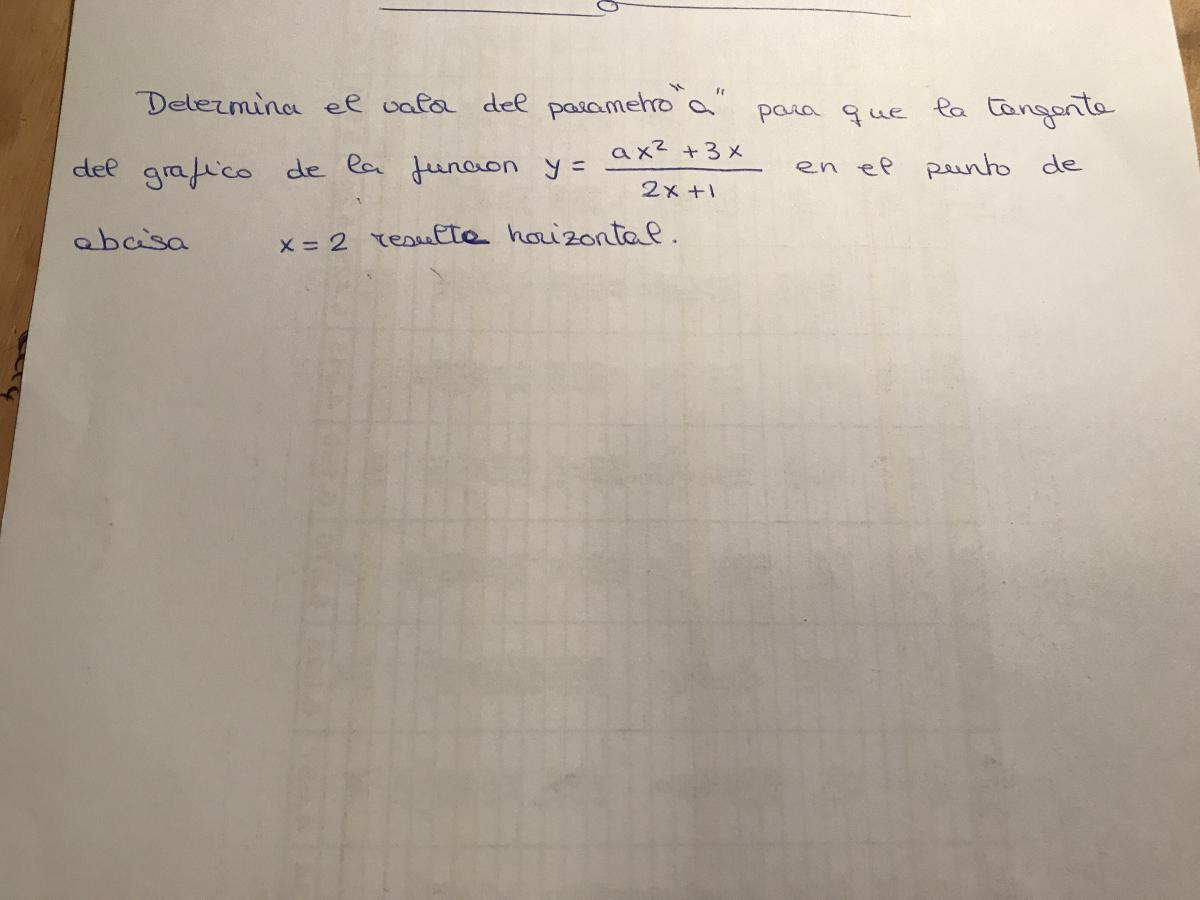 Determina el valor del parametro "a" para que la tangente
del grafico de la funcion y = ax² + 3x / 2x + 1 en el punto de
abcisa x = 2 resulte horizontal.